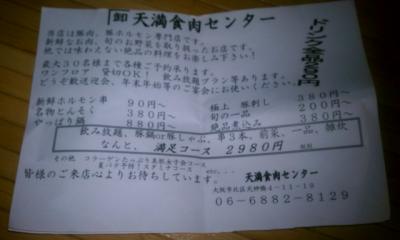 卸 天満食肉センター
ドリンク全品200円
当店は豚肉、豚ホルモン専門店です。
新鮮なお肉、旬のお野菜を取り扱ったお店です。
他では味わえない絶品の料理をお楽しみ下さい!
最大30名様まで各種ご予約承ります。
ワンフロア 貸切OK! 飲み放題プラン等あります。
どうぞ歓送迎会、年末年始等のご宴会にお使いください。
新鮮ホルモン串 90円~
名物とんそく 380円
やっぱり鍋 880円~
極上 豚刺し 380円~
旬の一品 200円~
絶品煮込み 380円
飲み放題、豚鍋or豚しゃぶ、串3本、前菜、一品、雑炊
なんと、 満足コース 2980円
その他 コラーゲンたっぷり美肌女子会コース
夏バテ予防!スタミナコース etc...
皆様のご来店心よりお待ちしています。
天満食肉センター
大阪市北区天神橋4-11-19
06-6882-8129